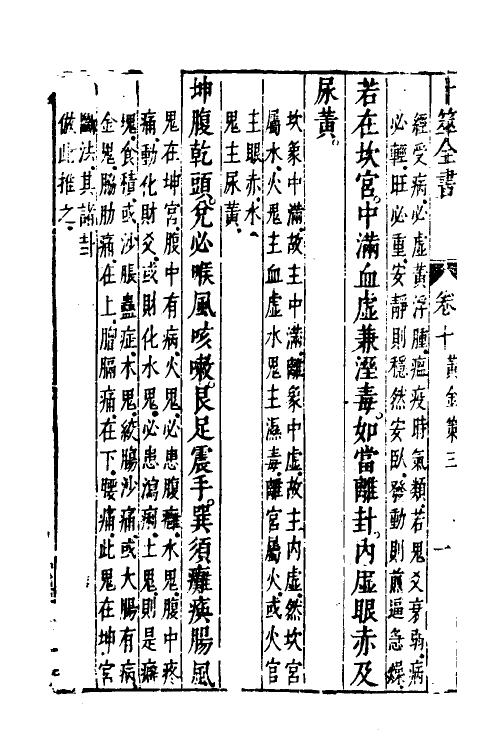 卜筮全書　卷十　黃金策三　一
經受病必虛黃浮腫瘟疫時氣類若鬼爻衰弱病
必輕旺必重安靜則穩然安臥發動則煎逼急燥
若在坎宮中滿血虛兼溼毒如當離卦內虛眼赤及
尿黃
坎象中滿故主中滿離象中虛故主內虛然坎宮
屬水火鬼主血虛水鬼主濕毒離宮屬火或火官
主眼赤水
鬼主尿黃
坤腹乾頭兌必喉風咳嗽艮足震手巽須癱瘓腸風
鬼在坤宮腹中有病火鬼必患腹癰水鬼腹中疼
痛動化財爻或財化水鬼必患瀉痢土鬼則是癖
塊食積或沙脹蠱症木鬼絞腸沙痛或大腸有病
金鬼脇肋痛在上胸膈痛在下腰痛此鬼在坤宮
斷法其諸卦
倣此推之